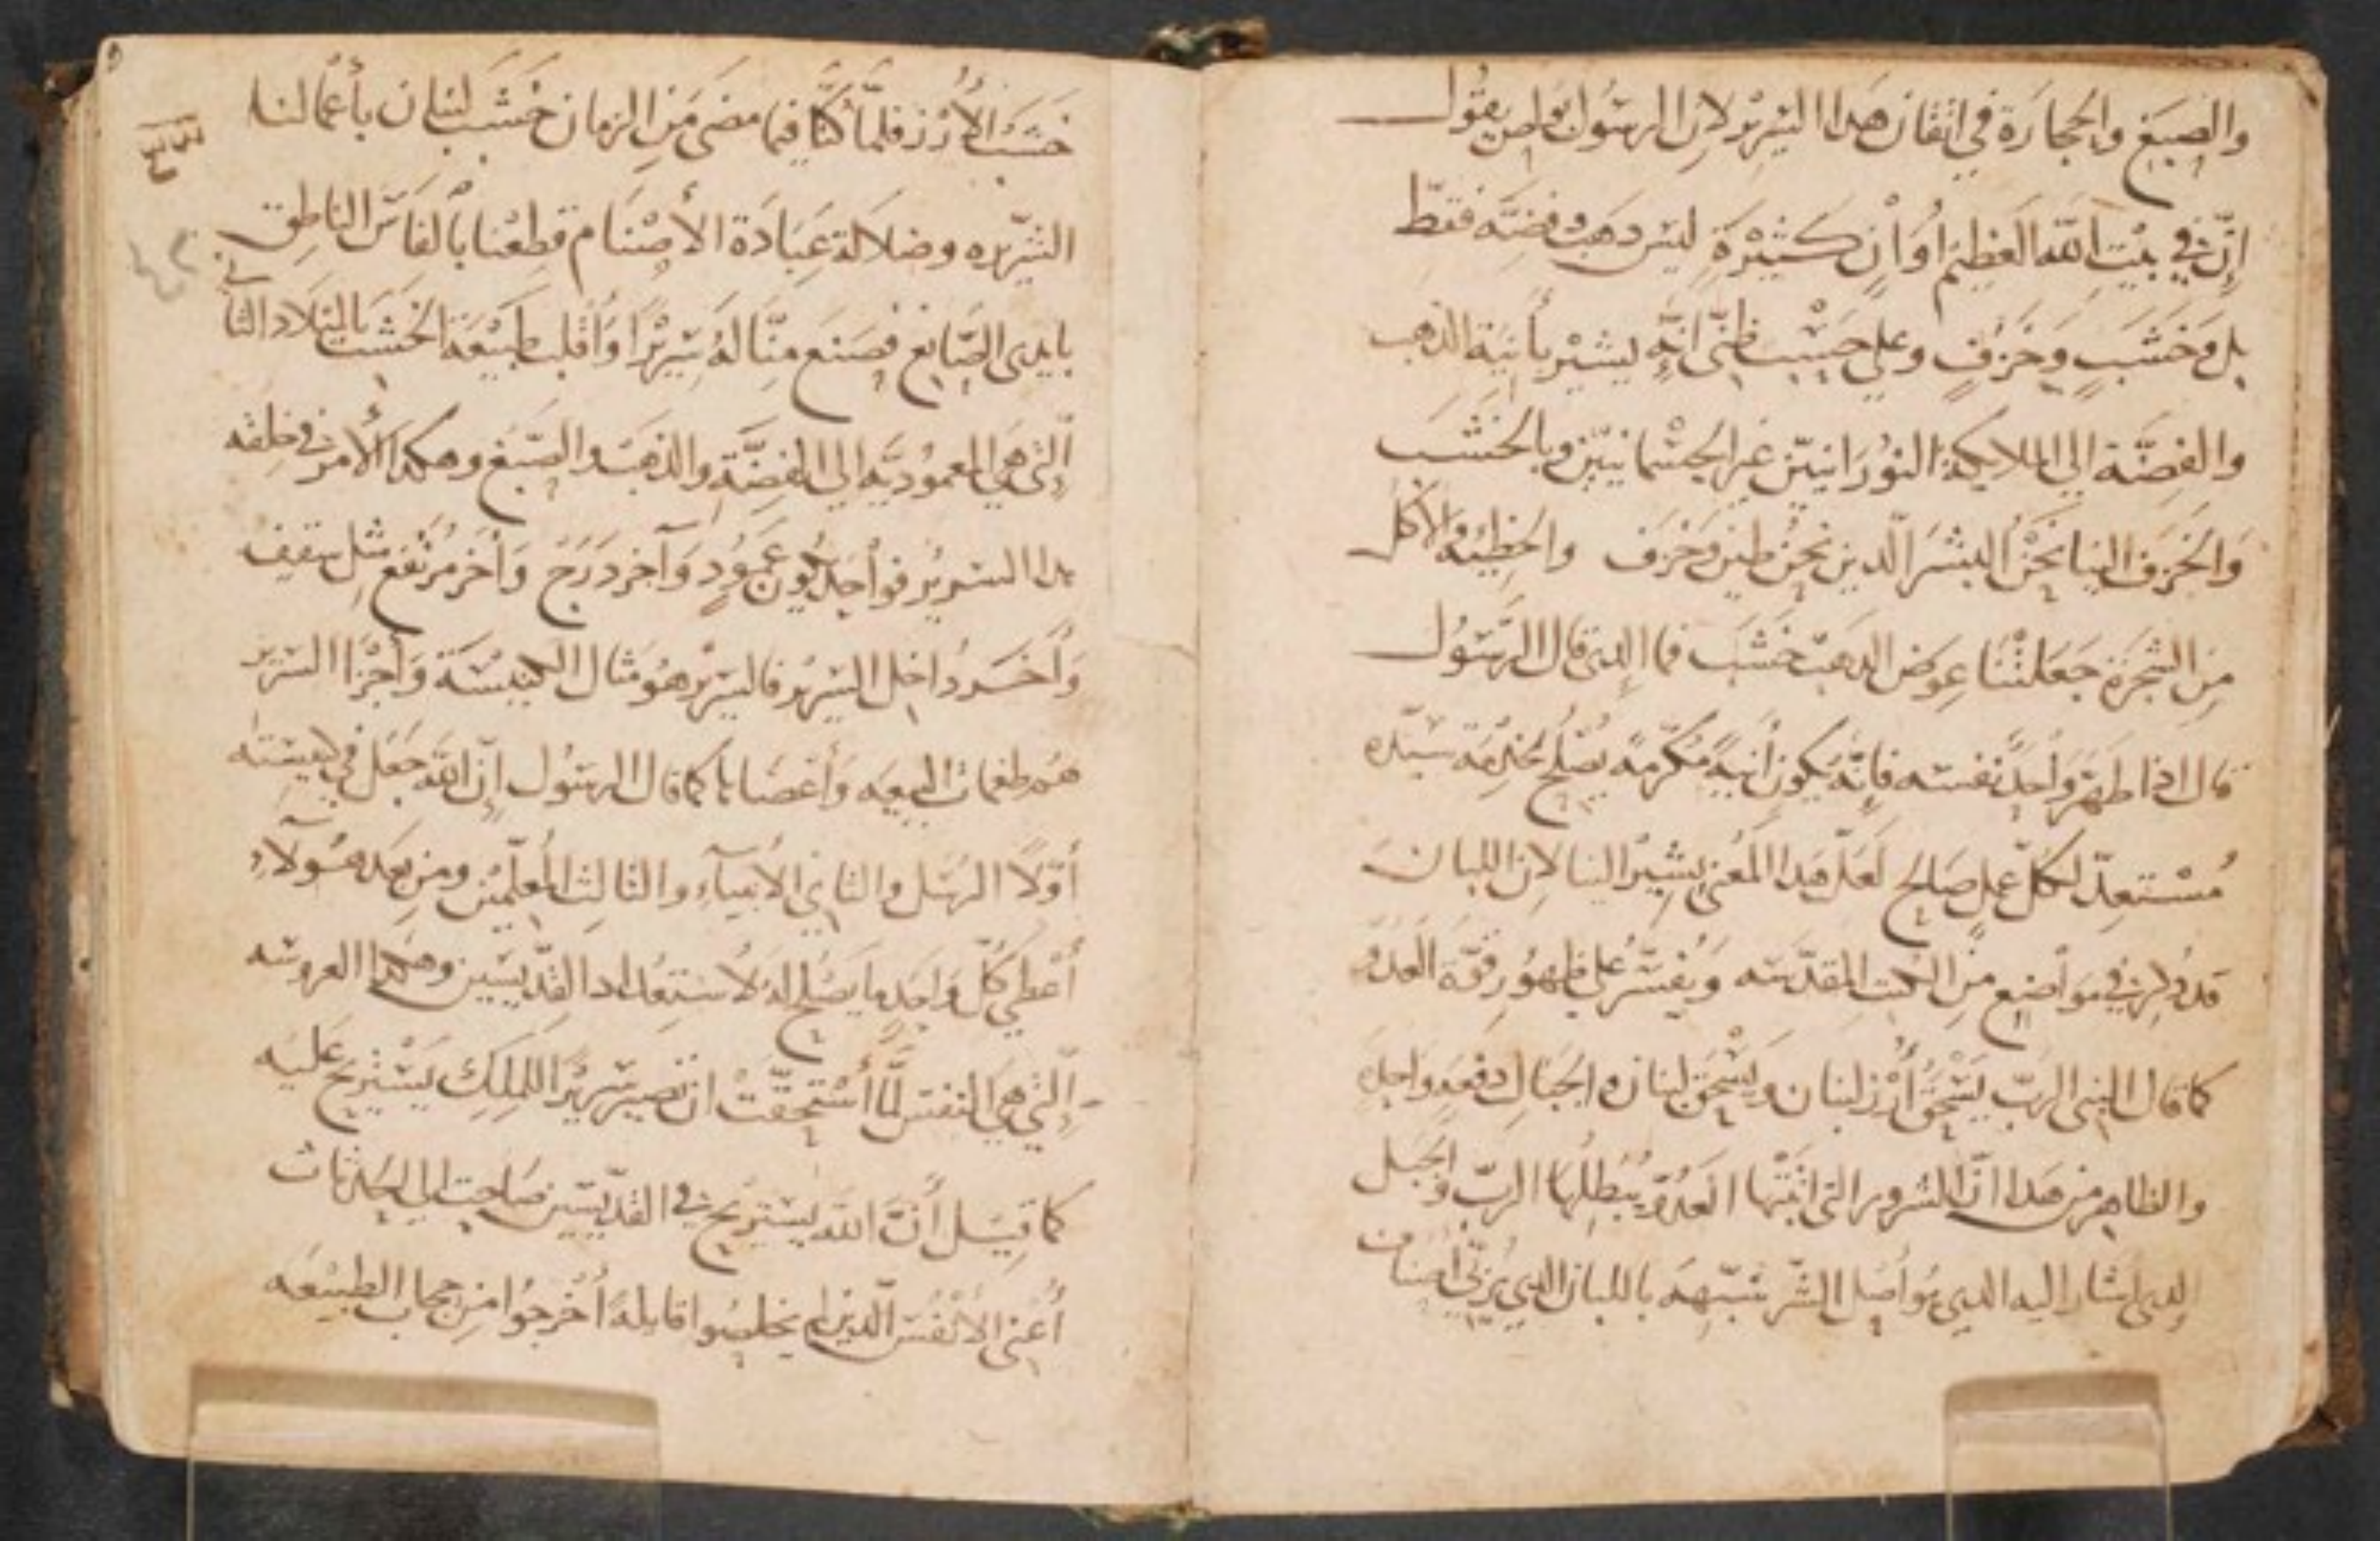 والصبغ والحجارة في اتقان هدا السرير لان الرسول بولص يقول
إن في بيت الله العظيم أوان كثيرة ليس دهب وفضه فقط
بل وخشب وخزف وعلى حسب ظني انه يشير بأنية الدهب
والفضة الي الملايكة النورانيين غير الجسمانيين وبالخشب
والخزف الينا نحن البشر الدين نحن طين وخزف والخطيه والأكل
من الشجرة جعلتنا عوض الدهب خشب فما الدي قال الرسول
قال ادا طهر واحد نفسه فإنه يكون أنية مكرمه يصلح لخدمة سيده
مستعد لكل عمل صالح لعل هدا المعنى يشير الينا لان اللبان
قد دكر في مواضع من الكتب المقدسه ويفسر على ظهور قوة العدو
كما قال النبي الرب يسحق أرز لبنان ويسحق لبنان ه الجبال دفعه واحده
والظاهر من هدا ان الشرور التي انبتها العدو يبطلها الرب والجبل
الدي اشار اليه الدي هو أصل الشر شبهه باللبان الدي يربي أصناف
خشب الأرز فلما كنا فيما مضى من الزمان خشب لبنان بأعمالنا
الشريره وضلالة عبادة الأصنام قطعنا بالفاس الناطق
بايدي الصانع فصنع منا له سريرا وأقلب طبيعة الخشب بالميلاد الثاني
التي هي المعموديه الي الفضة والدهب والصبغ وهكدا الأمر في خلقه
هدا السرير فواحد يكون عمود وآخر درج وأخر مرتفع مثل سقيف
وأخر داخل السرير فالسرير هو مثال الكنيسة وأجزا السرير
هم طغمات البيعه وأعضاها كما قال الرسول إن الله جعل في كنيسته
أولا الرسل والثاني الأنبياء والثالث المعلمين ومن بعد هولاء
أعطي كل واحد ما يصلح له لاستعداد القديسين وهكدا العروسه
التي هي النفس لما استحقت ان تصير سريرا للملك يستريح عليه
كما قيل أن الله يستريح في القديسين صاحت الي الحدثات
أعني الأنفس الدين لم يخلصوا قايلة أخرجوا من حجاب الطبيعه